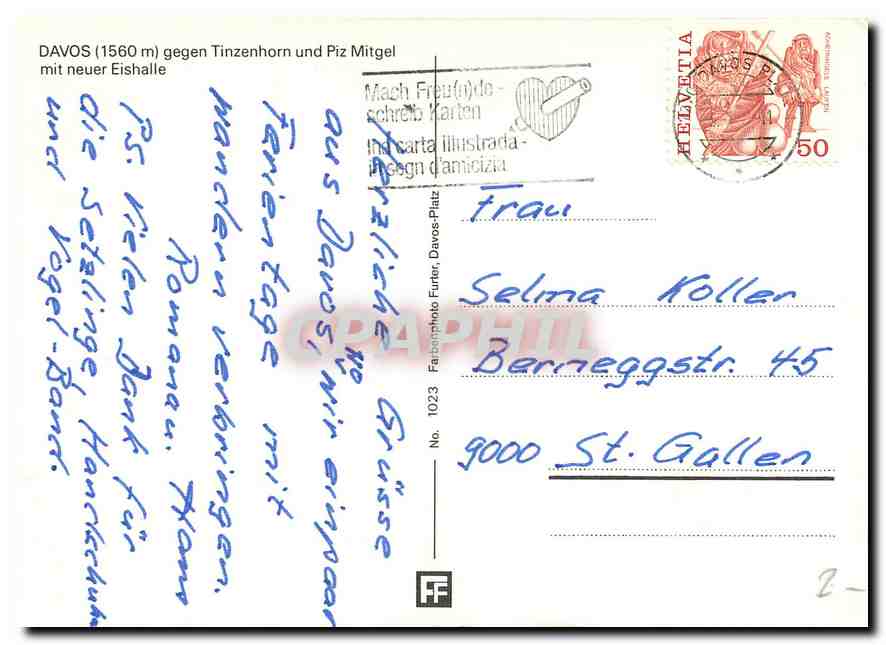 DAVOS (1560 m) gegen Tinzenhorn und Piz Mitgel
mit neuer Eishalle
Mach Freu(n)de -
schreib Karten
Ina carta illustrada -
in segn d'amicizia
DAVOS PL
HELVETIA
ACHETRINGELE LAUPEN
50
Herzliche Grüsse
aus Davos, wo wir ein paar
Ferientage mit
wandern verbringen.
Romana u. Hans
Ps. Vielen Dank für
die Setzlinge, Handschuhe
und Vogel-Band.
Frau
Selma Koller
Berneggstr. 45
9000 St. Gallen
No. 1023 Farbenphoto Furter, Davos-Platz
FF
CPAPHIL
2-